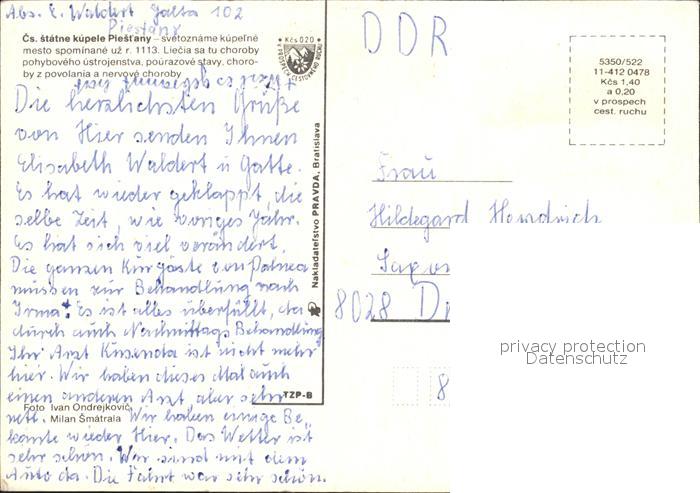 Abs. E. Waldert Galta 102
Piešťany
Čs. štátne kúpele Piešťany – svetoznáme kúpeľné
mesto spomínané už r. 1113. Liečia sa tu choroby
pohybového ústrojenstva, poúrazové stavy, choro-
by z povolania a nervové choroby
Kčs 0,20
V PROSPECH CESTOVNÉHO RUCHU
Die herzlichsten Grüße
von Hier senden Ihnen
Elisabeth Waldert u Gatte.
Es hat wieder geklappt, die
selbe Zeit, wie voriges Jahr.
Es hat sich viel verändert.
Die ganzen Kurgäste von Palmea
müssen zur Behandlung nach
Irma. Es ist alles überfüllt, da
durch auch Nachmittags Behandlung
Ihr Arzt Kusenda ist nicht mehr
hier. Wir haben dieses Mal auch
einen anderen Arzt aber sehr
nett. Wir haben einige Be
kannte wieder Hier. Das Wetter ist
sehr schön. Wir sind mit dem
Auto da. Die Fahrt war sehr schön.
Foto Ivan Ondrejkovič
Milan Šmátrala
TZP-B
Nakladateľstvo PRAVDA, Bratislava
DDR
5350/522
11-412 0478
Kčs 1,40
a 0,20
v prospech
cest. ruchu
Frau
Hildegard Handrich
8028 Dr
8
privacy protection
Datenschutz